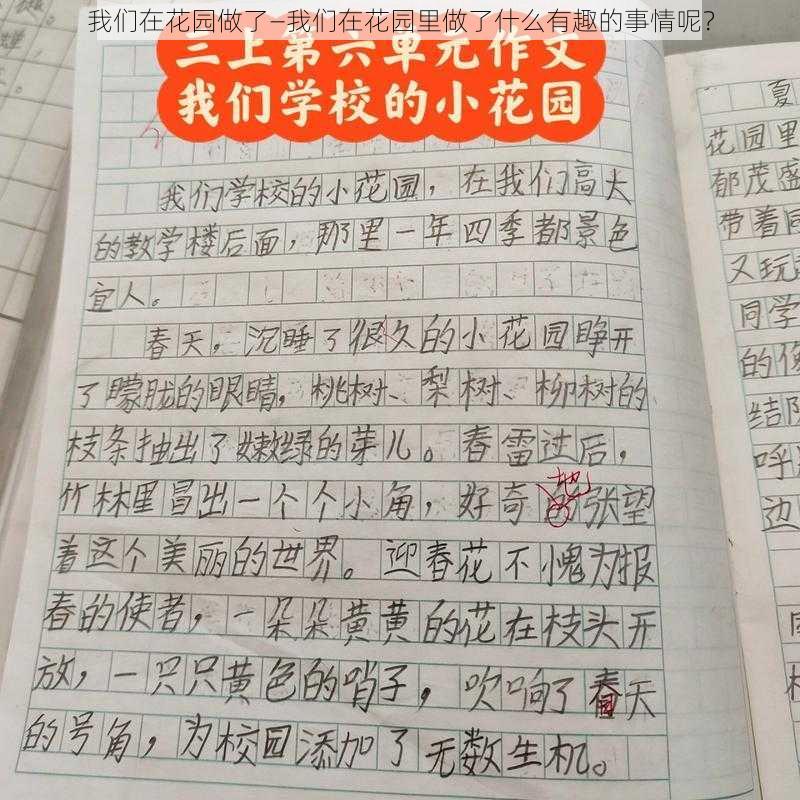 我们在花园做了–我们在花园里做了什么有趣的事情呢?
三上第六单元作文
我们学校的小花园
我们学校的小花园，在我们高大
的教学楼后面，那里一年四季都景色
宜人。
春天，沉睡了很久的小花园睁开
了朦胧的眼睛，桃树、梨树、柳树的
枝条抽出了嫩绿的芽儿。春雷过后，
竹林里冒出一个个小角，好奇地张望
着这个美丽的世界。迎春花不愧为报
春的使者，一朵朵黄黄的花在枝头开
放，一只只黄色的哨子，吹响了春天
的号角，为校园添加了无数生机。
夏
花园里
郁茂盛
带着同
又玩
同学
的
结队
呼
边